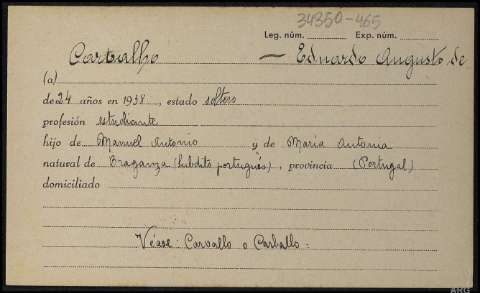 34350-465
Leg. núm. Exp. núm.
Carvalho — Eduardo Augusto de
(a)
de 24 años en 1938, estado soltero
profesión estudiante
hijo de Manuel Antonio y de María Antonia
natural de Braganza (subdito portugués), provincia (Portugal)
domiciliado
Véase: Carvallo o Carballo.
ARG